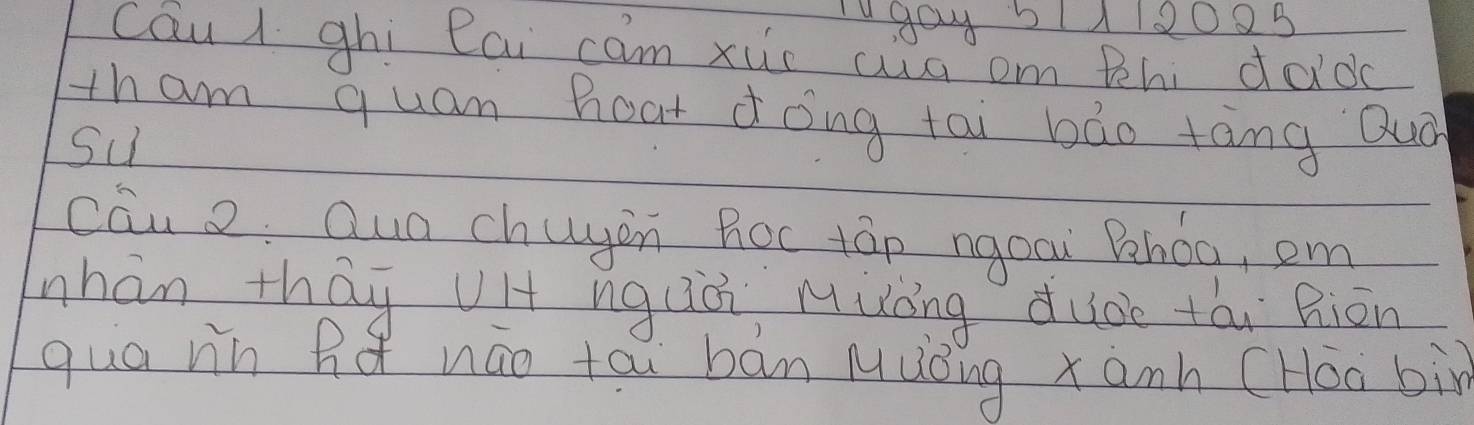 Ngày 5/1/2025
Câu 1. ghi lại cảm xúc của em khi được
tham quan hoạt động tại bảo tàng Quân
sự
Câu 2: Qua chuyến học tập ngoại khóa, em
nhận thấy VH người Mường được tái hiện
qua nh hđ nào tại bản Mường xanh (Hòa bìn